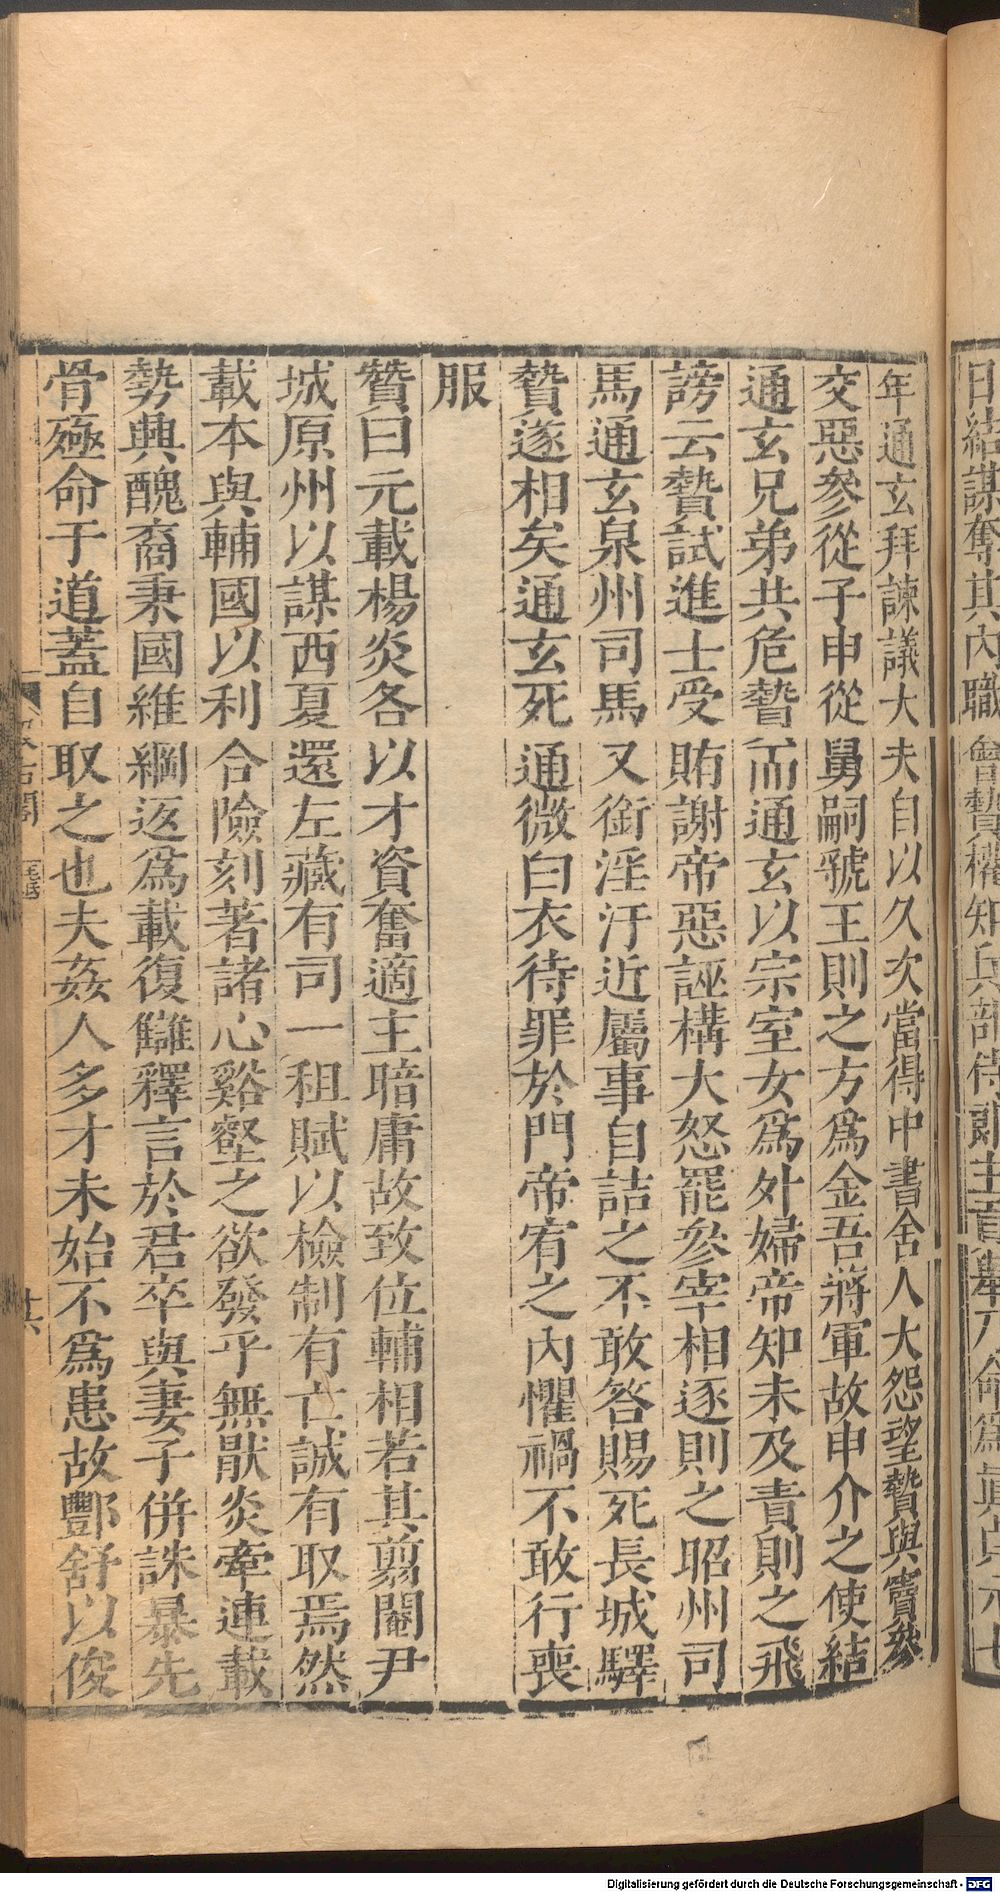 日結謀奪其內職會贄權知兵部侍郎主貢舉乃命爲眞貞元七
年通玄拜諫議大夫自以久次當得中書舍人大怨望贄與竇參
交惡參從子申從舅嗣虢王則之方爲金吾將軍故申介之使結
通玄兄弟共危贄而通玄以宗室女爲外婦帝知未及責則之飛
謗云贄試進士受賄謝帝惡誣構大怒罷參宰相逐則之昭州司
馬通玄泉州司馬又銜淫汙近屬事自詰之不敢答賜死長城驛
贄遂相矣通玄死通微白衣待罪於門帝宥之內懼禍不敢行喪
服
贊曰元載楊炎各以才資奮適主暗庸故致位輔相若其剪閹尹
城原州以謀西夏還左藏有司一租賦以檢制有亡誠有取焉然
載本與輔國以利合險刻著諸心谿壑之欲發乎無猒炎牽連載
勢興醜裔秉國維綱返爲載復讎釋言於君卒與妻子併誅暴先
骨殛命于道蓋自取之也夫姦人多才未始不爲患故酆舒以俊
十六
Digitalisierung gefördert durch die Deutsche Forschungsgemeinschaft - DFG